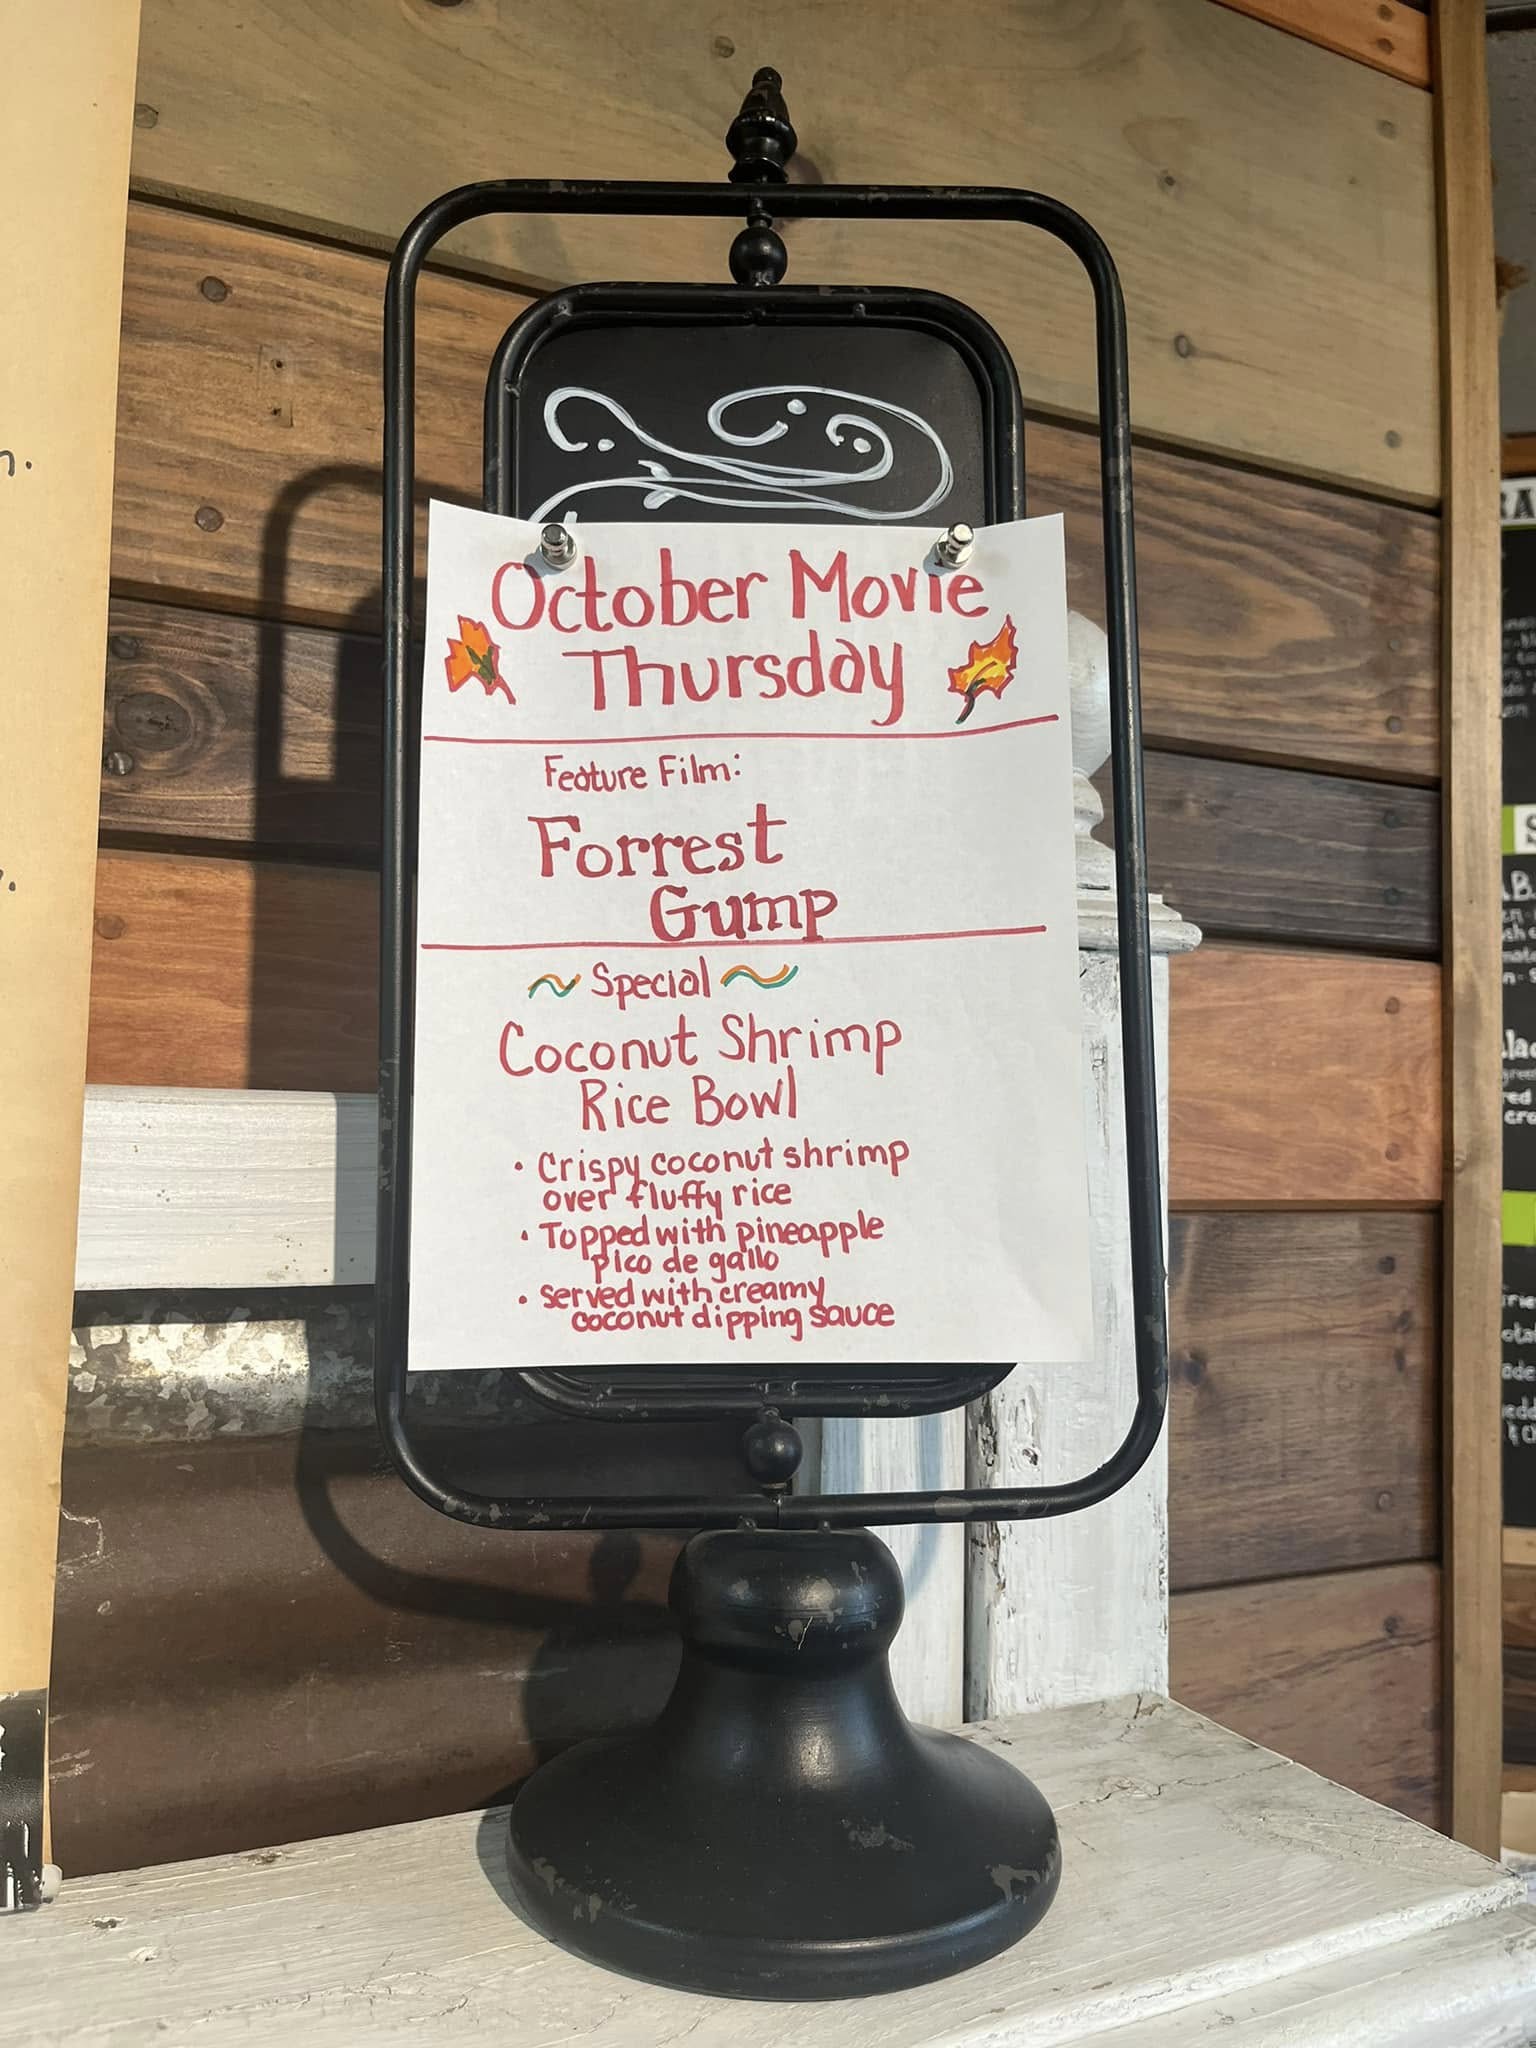 October Movie
Thursday
Feature Film:
Forrest
Gump
Special
Coconut Shrimp
Rice Bowl
• Crispy coconut shrimp
over fluffy rice
• Topped with pineapple
pico de gallo
• served with creamy
coconut dipping sauce